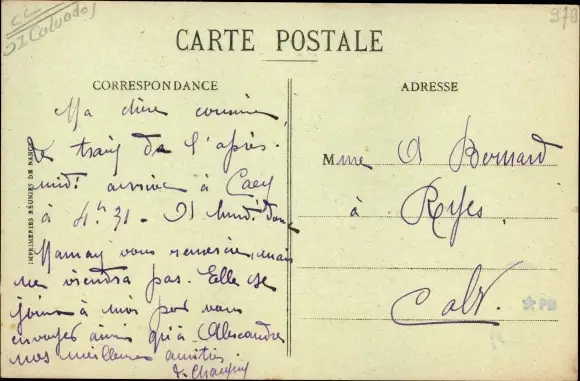 Calvados
979
CARTE POSTALE
CORRESPONDANCE
ADRESSE
IMPRIMERIES RÉUNIES DE NANCY
Ma chère cousine,
Le train de l'après-
midi arrive à Caen
à 4h 31. A lundi donc
Maman vous remercie, mais
ne viendra pas. Elle se
joint à moi pour vous
envoyer ainsi qu'à Alexandre
nos meilleures amitiés
Mme A Bernard
à Ryes,
Calv.
PB